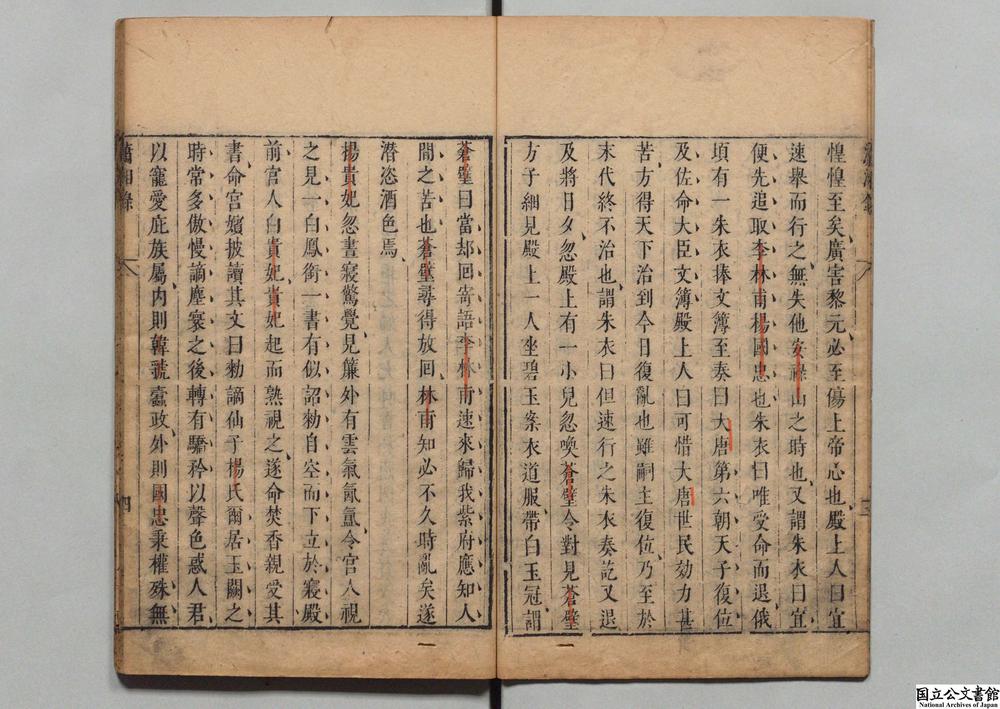 瀟湘錄
三
惶惶至矣廣害黎元必至傷上帝心也殿上人曰宜
速舉而行之無失他安祿山之時也又謂朱衣曰宜
便先追取李林甫楊國忠也朱衣曰唯受命而退俄
頃有一朱衣捧文簿至奏曰大唐第六朝天子復位
及佐命大臣文簿殿上人曰可惜大唐世民効力甚
苦方得天下治到今日復亂也雖嗣主復位乃至於
末代終不治也謂朱衣曰但速行之朱衣奏訖又退
及將日夕忽殿上有一小兒忽喚蒼璧令對見蒼璧
方子細見殿上一人坐碧玉案衣道服帶白玉冠謂
蒼璧曰當却回寄語李林甫速來歸我紫府應知人
間之苦也蒼璧尋得放回林甫知必不久時亂矣遂
潛恣酒色焉
楊貴妃忽晝寢驚覺見簾外有雲氣氤氳令宮人視
之見一白鳳銜一書有似詔勑自空而下立於寢殿
前宮人白貴妃貴妃起而熟視之遂命焚香親受其
書命宮嬪披讀其文曰勑謫仙子楊氏爾居玉闕之
時常多傲慢謫塵寰之後轉有驕矜以聲色惑人君
以寵愛庇族屬內則韓虢蠹政外則國忠秉權殊無
瀟湘錄
四
国立公文書館
National Archives of Japan